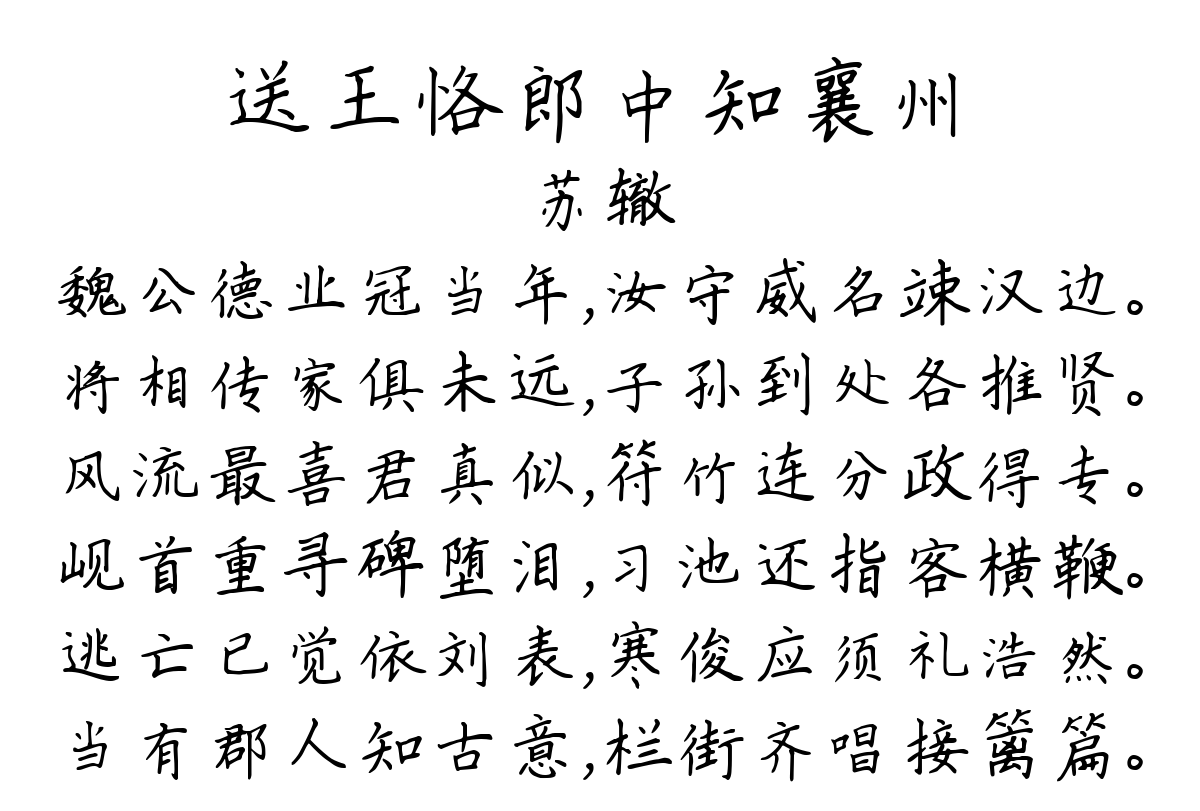 送王恪郎中知襄州
苏辙
魏公德业冠当年,汝守威名竦汉边。
将相传家俱未远,子孙到处各推贤。
风流最喜君真似,符竹连分政得专。
岘首重寻碑堕泪,习池还指客横鞭。
逃亡已觉依刘表,寒俊应须礼浩然。
当有郡人知古意,栏街齐唱接篱篇。